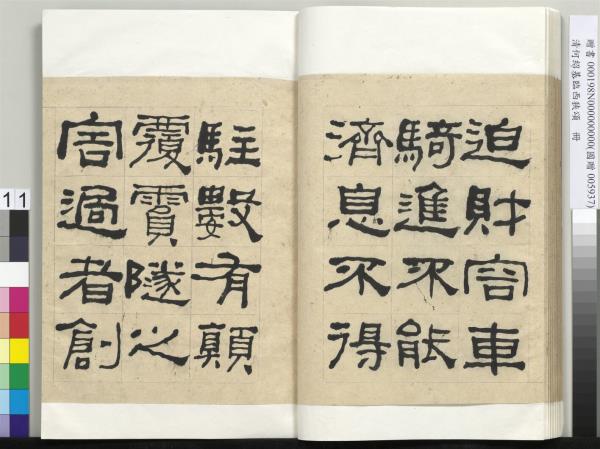 迫財容車
騎進不能
濟息不得
駐數有顛
覆霣隧之
害過者創
贈書 000198N000000000(國贈 005937)
清何紹基臨西狹頌 冊
11